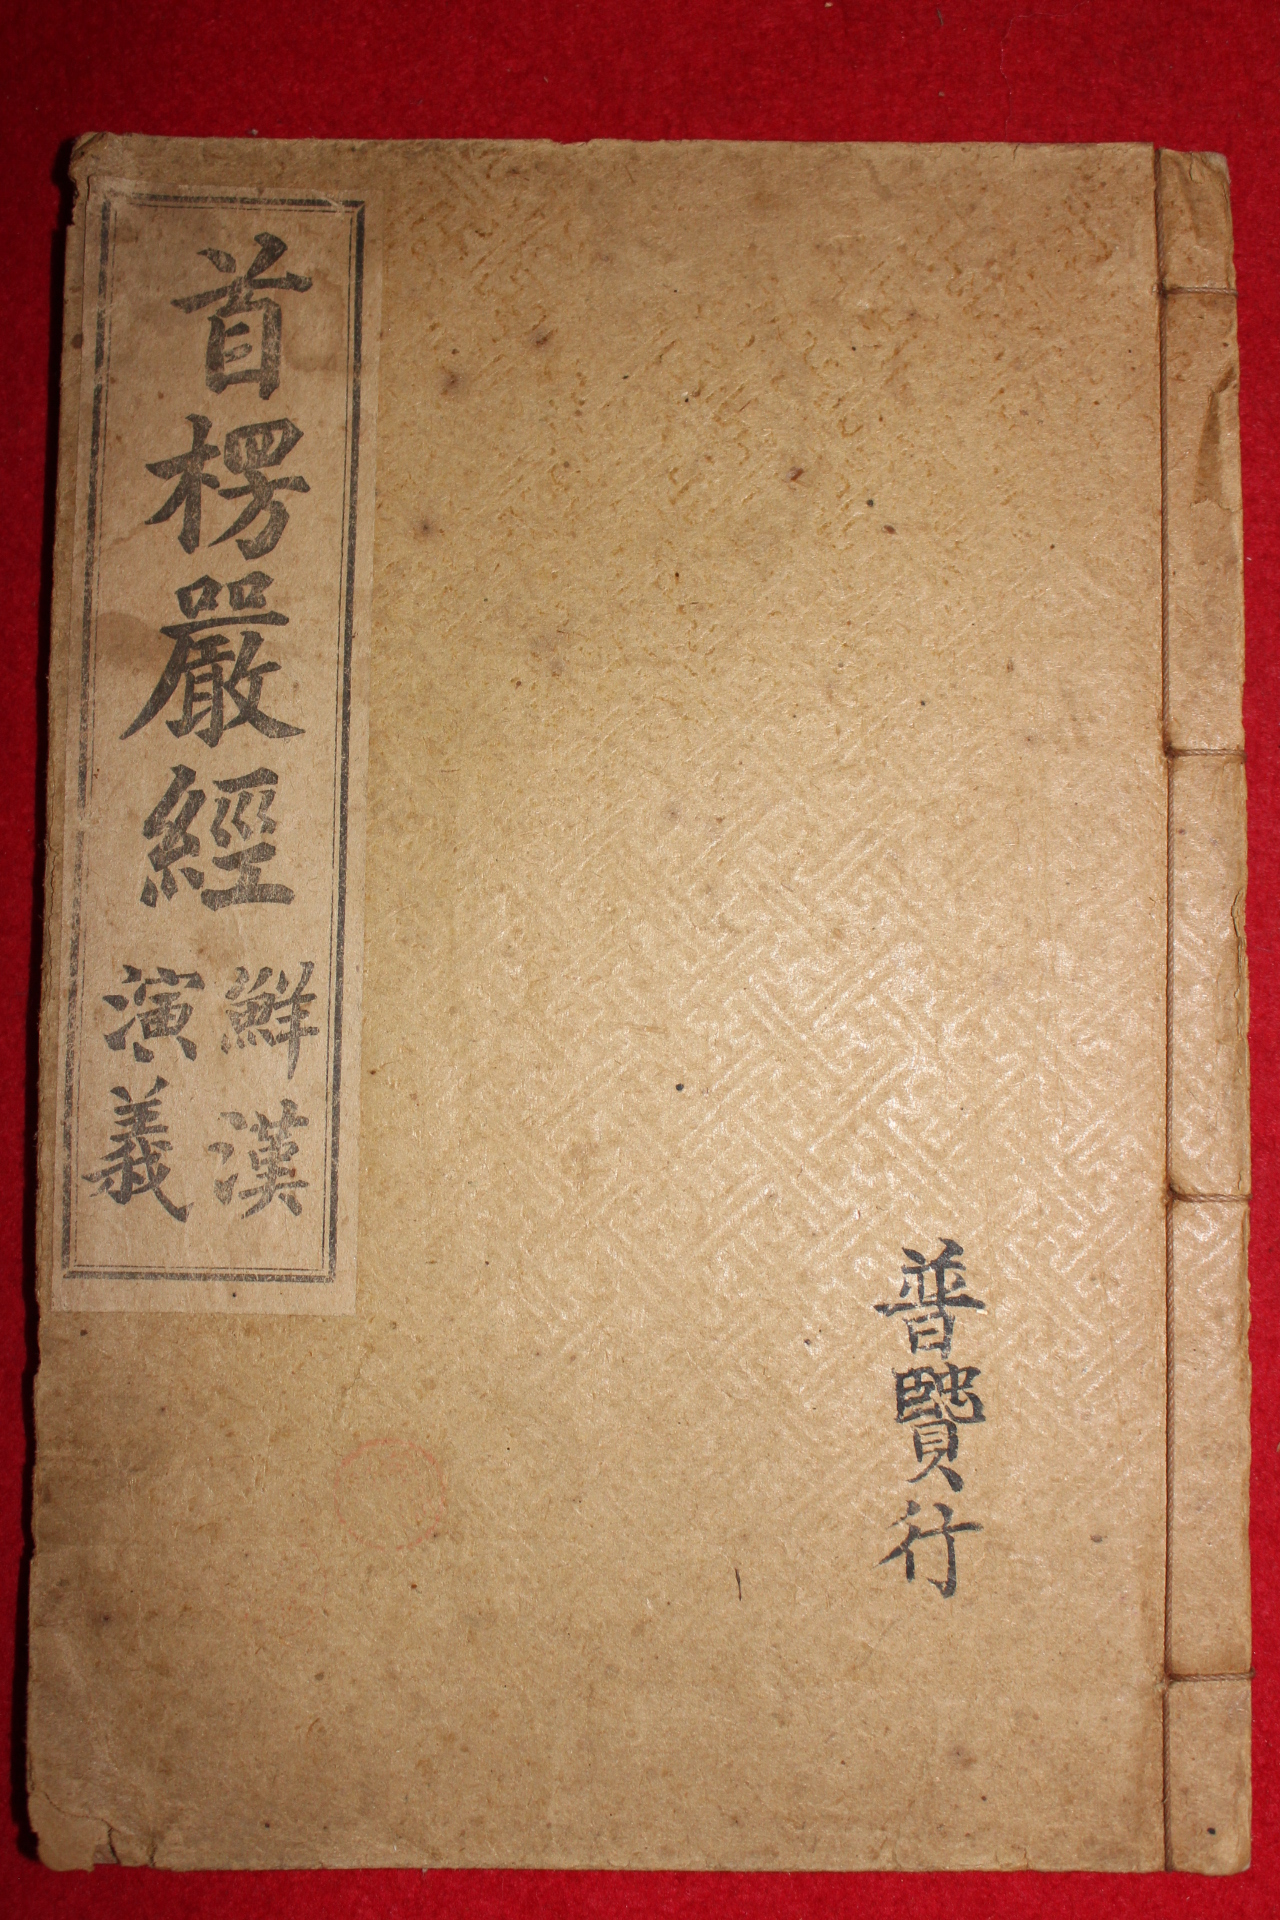 普賢行
首楞嚴經
鮮漢
演義